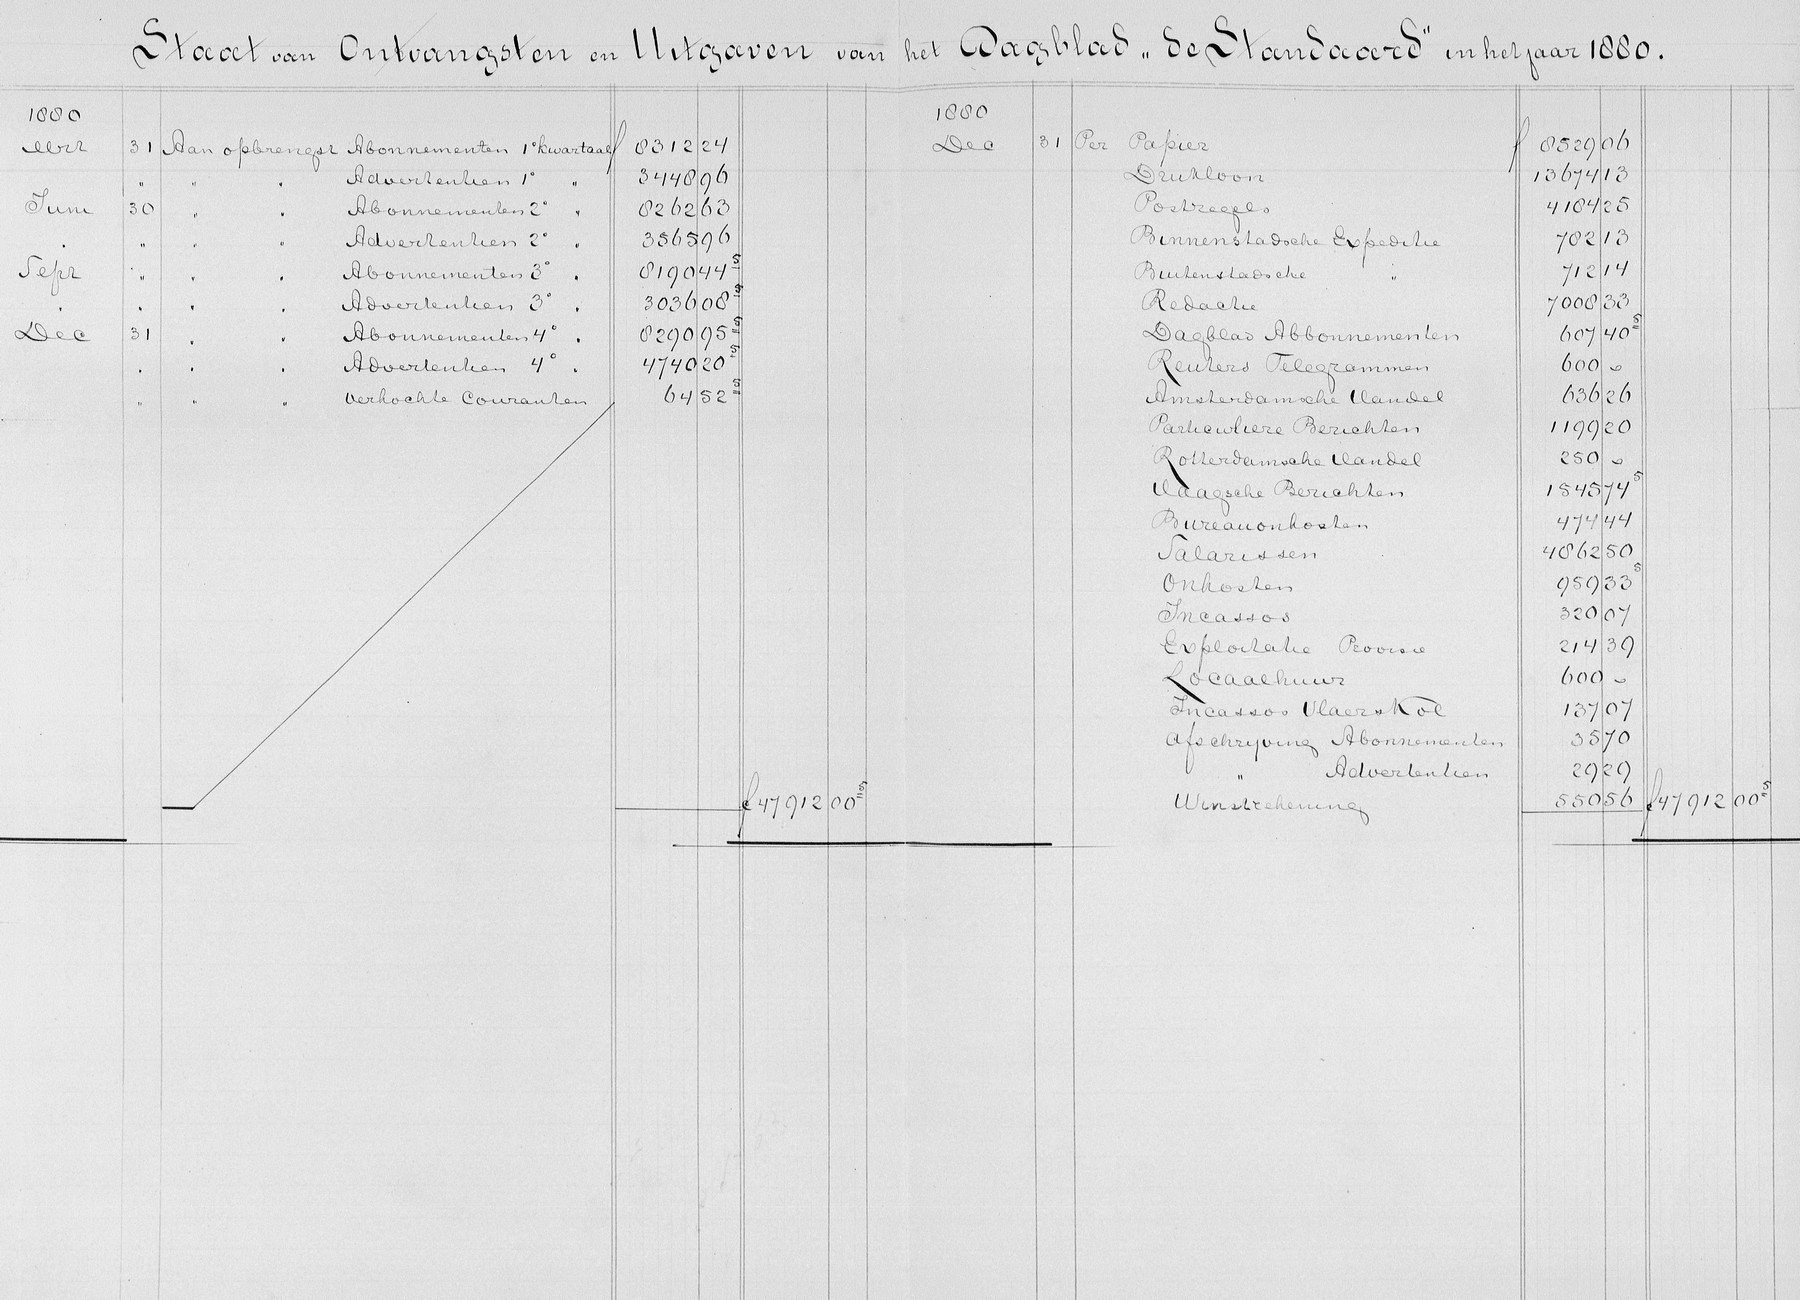 Staat van Ontvangsten en Uitgaven van het Dagblad „de Standaard" in het jaar 1880.
1880
Mrt 31 Aan opbrengst Abonnementen 1e kwartaal f 8312 24
" " " Advertentien 1e " 3448 96
Juni 30 " " Abonnementen 2e " 8262 63
" " " " Advertentien 2e " 3565 96
Sept " " " Abonnementen 3e " 8190 44 5
" " " " Advertentien 3e 3036 08 5
Dec 31 " " Abonnementen 4e " 8290 95 5
" " " " Advertentien 4e " 4740 20 5
" " " verkochte Couranten 64 52 5
f 47912 00 5
1880
Dec 31 Per Papier f 8529 06
Drukloon 13674 13
Postzegels 4184 25
Binnenstadsche Expeditie 782 13
Buitenstadsche " 712 14
Redactie 7008 33
Dagblad Abbonnementen 607 40 5
Reuters Telegrammen 600 -
Amsterdamsche Handel 636 26
Particuliere Berichten 1199 20
Rotterdamsche Handel 250 -
Haagsche Berichten 1545 74 5
Bureauonkosten 474 44
Salarissen 4862 50
Onkosten 959 33 5
Incassos 320 07
Exploitatie Provisie 214 39
Locaalhuur 600 -
Incassos 137 07
Afschrijving Abonnementen 35 70
" Advertentien 29 29
Winstrekening 550 56 f 47912 00 5